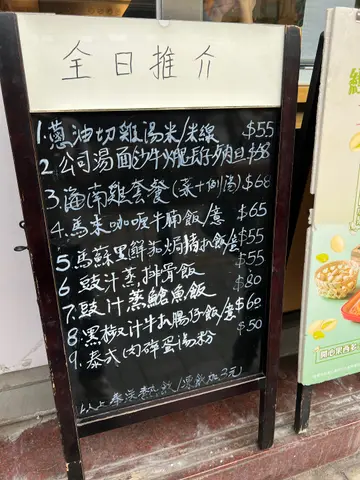 全日推介
1.蔥油切雞湯米/米線 $55
2.公司湯面 $58
3.海南雞套餐(菜+例湯) $68
4.馬來咖喱牛腩飯/意 $65
5.馬蘇里鮮茄焗豬扒飯/意 $55
6 豉汁蒸排骨飯 $55
7.豉汁蒸鱔魚飯 $80
8.黑椒汁牛扒腸仔飯/意 $60
9.泰式(肉碎蛋湯粉 $50
以上奉送熱飲/凍飲加3元